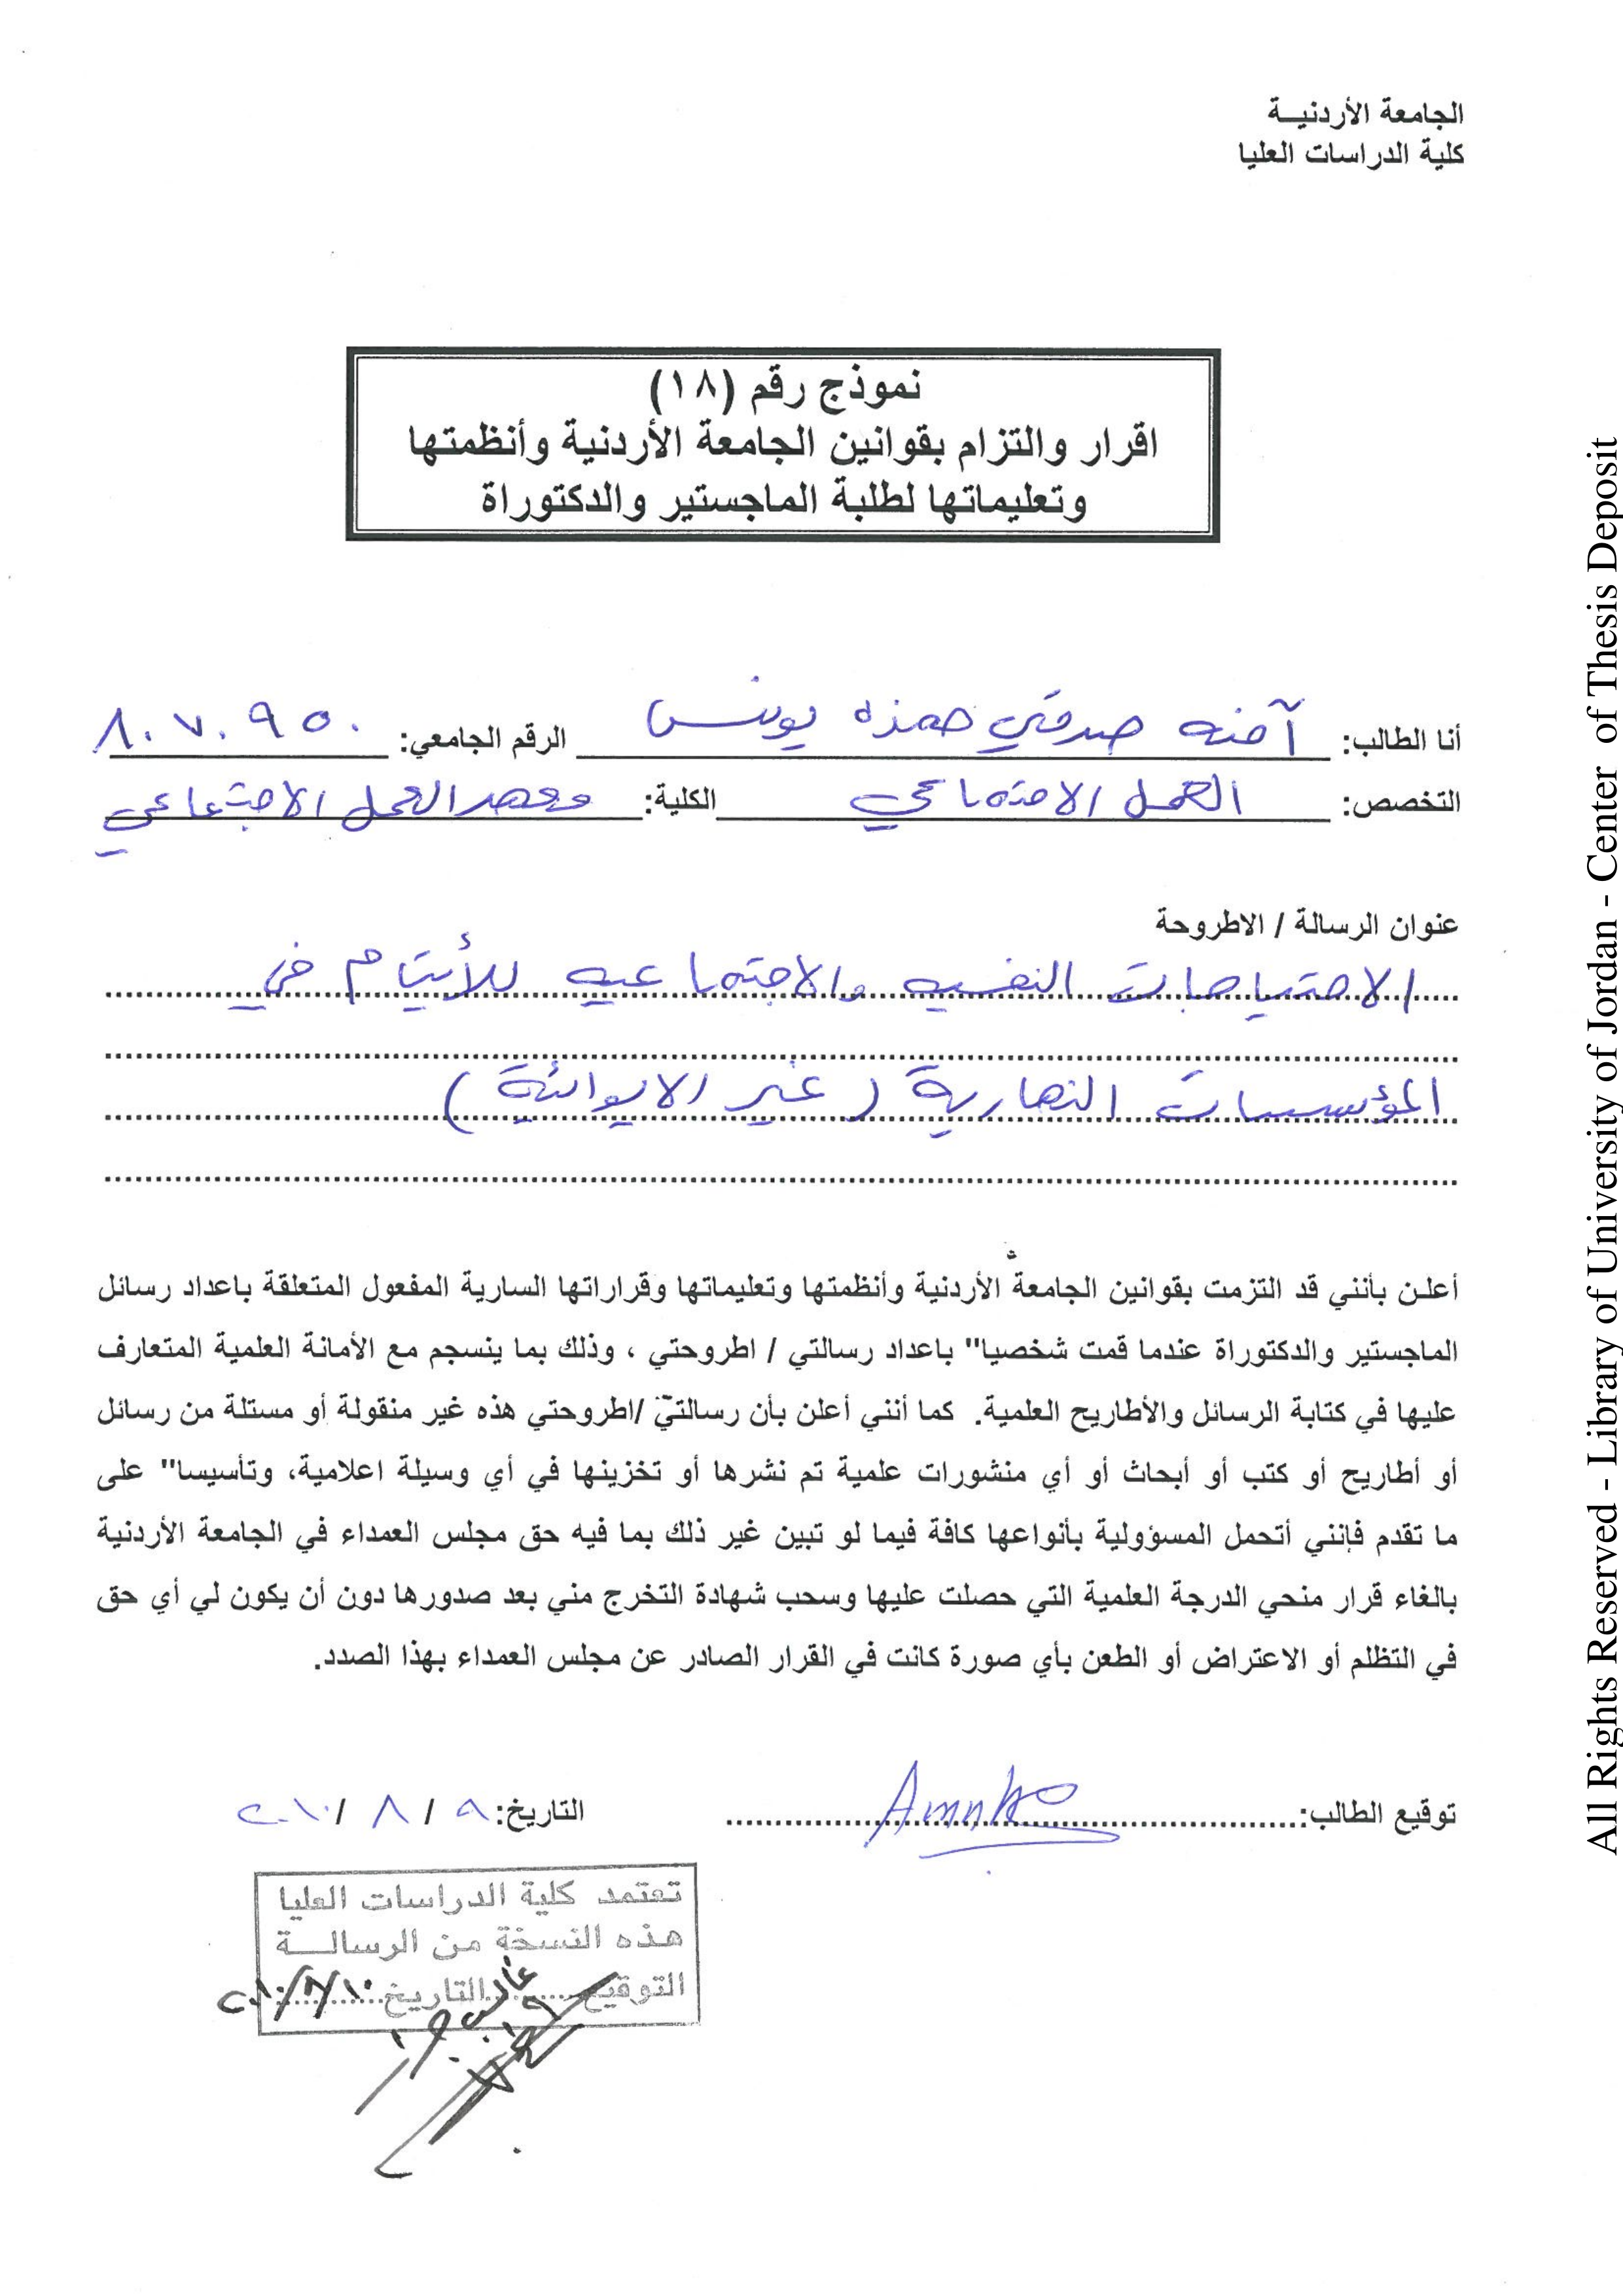 الجامعة الأردنيــة
كلية الدراسات العليا
نموذج رقم (١٨)
اقرار والتزام بقوانين الجامعة الأردنية وأنظمتها
وتعليماتها لطلبة الماجستير والدكتوراة
أنا الطالب: آمنه صدقي حمزه يونس الرقم الجامعي: ٨٠٧٠٩٥٠
التخصص: العمل الاجتماعي الكلية: معهد العمل الاجتماعي
عنوان الرسالة / الاطروحة
الاحتياجات النفسيه والاجتماعيه للأيتام في
المؤسسات النهارية (غير الايوائية)
أعلـن بأنني قد التزمت بقوانين الجامعة الأردنية وأنظمتها وتعليماتها وقراراتها السارية المفعول المتعلقة باعداد رسائل
الماجستير والدكتوراة عندما قمت شخصيا" باعداد رسالتي / اطروحتي ، وذلك بما ينسجم مع الأمانة العلمية المتعارف
عليها في كتابة الرسائل والأطاريح العلمية. كما أنني أعلن بأن رسالتي /اطروحتي هذه غير منقولة أو مستلة من رسائل
أو أطاريح أو كتب أو أبحاث أو أي منشورات علمية تم نشرها أو تخزينها في أي وسيلة اعلامية، وتأسيسا" على
ما تقدم فإنني أتحمل المسؤولية بأنواعها كافة فيما لو تبين غير ذلك بما فيه حق مجلس العمداء في الجامعة الأردنية
بالغاء قرار منحي الدرجة العلمية التي حصلت عليها وسحب شهادة التخرج مني بعد صدورها دون أن يكون لي أي حق
في التظلم أو الاعتراض أو الطعن بأي صورة كانت في القرار الصادر عن مجلس العمداء بهذا الصدد.
توقيع الطالب: التاريخ: ٩ / ٨ / ٢٠١٠
تعتمد كلية الدراسات العليا
هذه النسخة من الرسالــة
التوقيع التاريخ ٢٠١٠/٨/١٠
All Rights Reserved - Library of University of Jordan - Center of Thesis Deposit